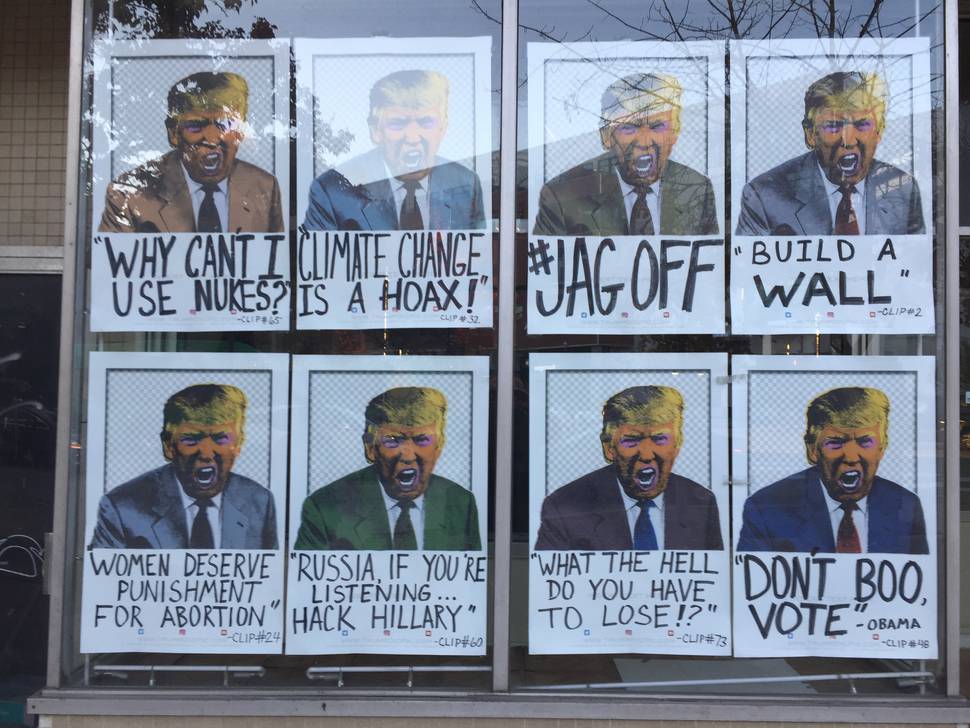 "WHY CAN'T I
USE NUKES?"
-CLIP#65
"CLIMATE CHANGE
IS A HOAX!"
-CLIP#32
#JAG OFF
"BUILD A
WALL"
-CLIP#2
"WOMEN DESERVE
PUNISHMENT
FOR ABORTION"
-CLIP#24
"RUSSIA, IF YOU'RE
LISTENING...
HACK HILLARY"
-CLIP#60
"WHAT THE HELL
DO YOU HAVE
TO LOSE!?"
-CLIP#73
"DON'T BOO,
VOTE" -OBAMA
-CLIP#48